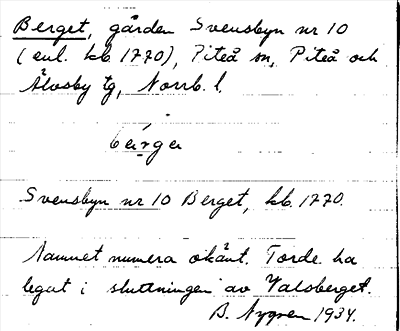 Berget, gården Svensbyn nr 10
(enl. kb 1770), Piteå sn, Piteå och
Älvsby tg, Norrb. l.
Svensbyn nr 10 Berget, kb. 1770.
Namnet numera okänt. Torde ha
legat i sluttningen av Valsberget.
B. Nygren 1934.